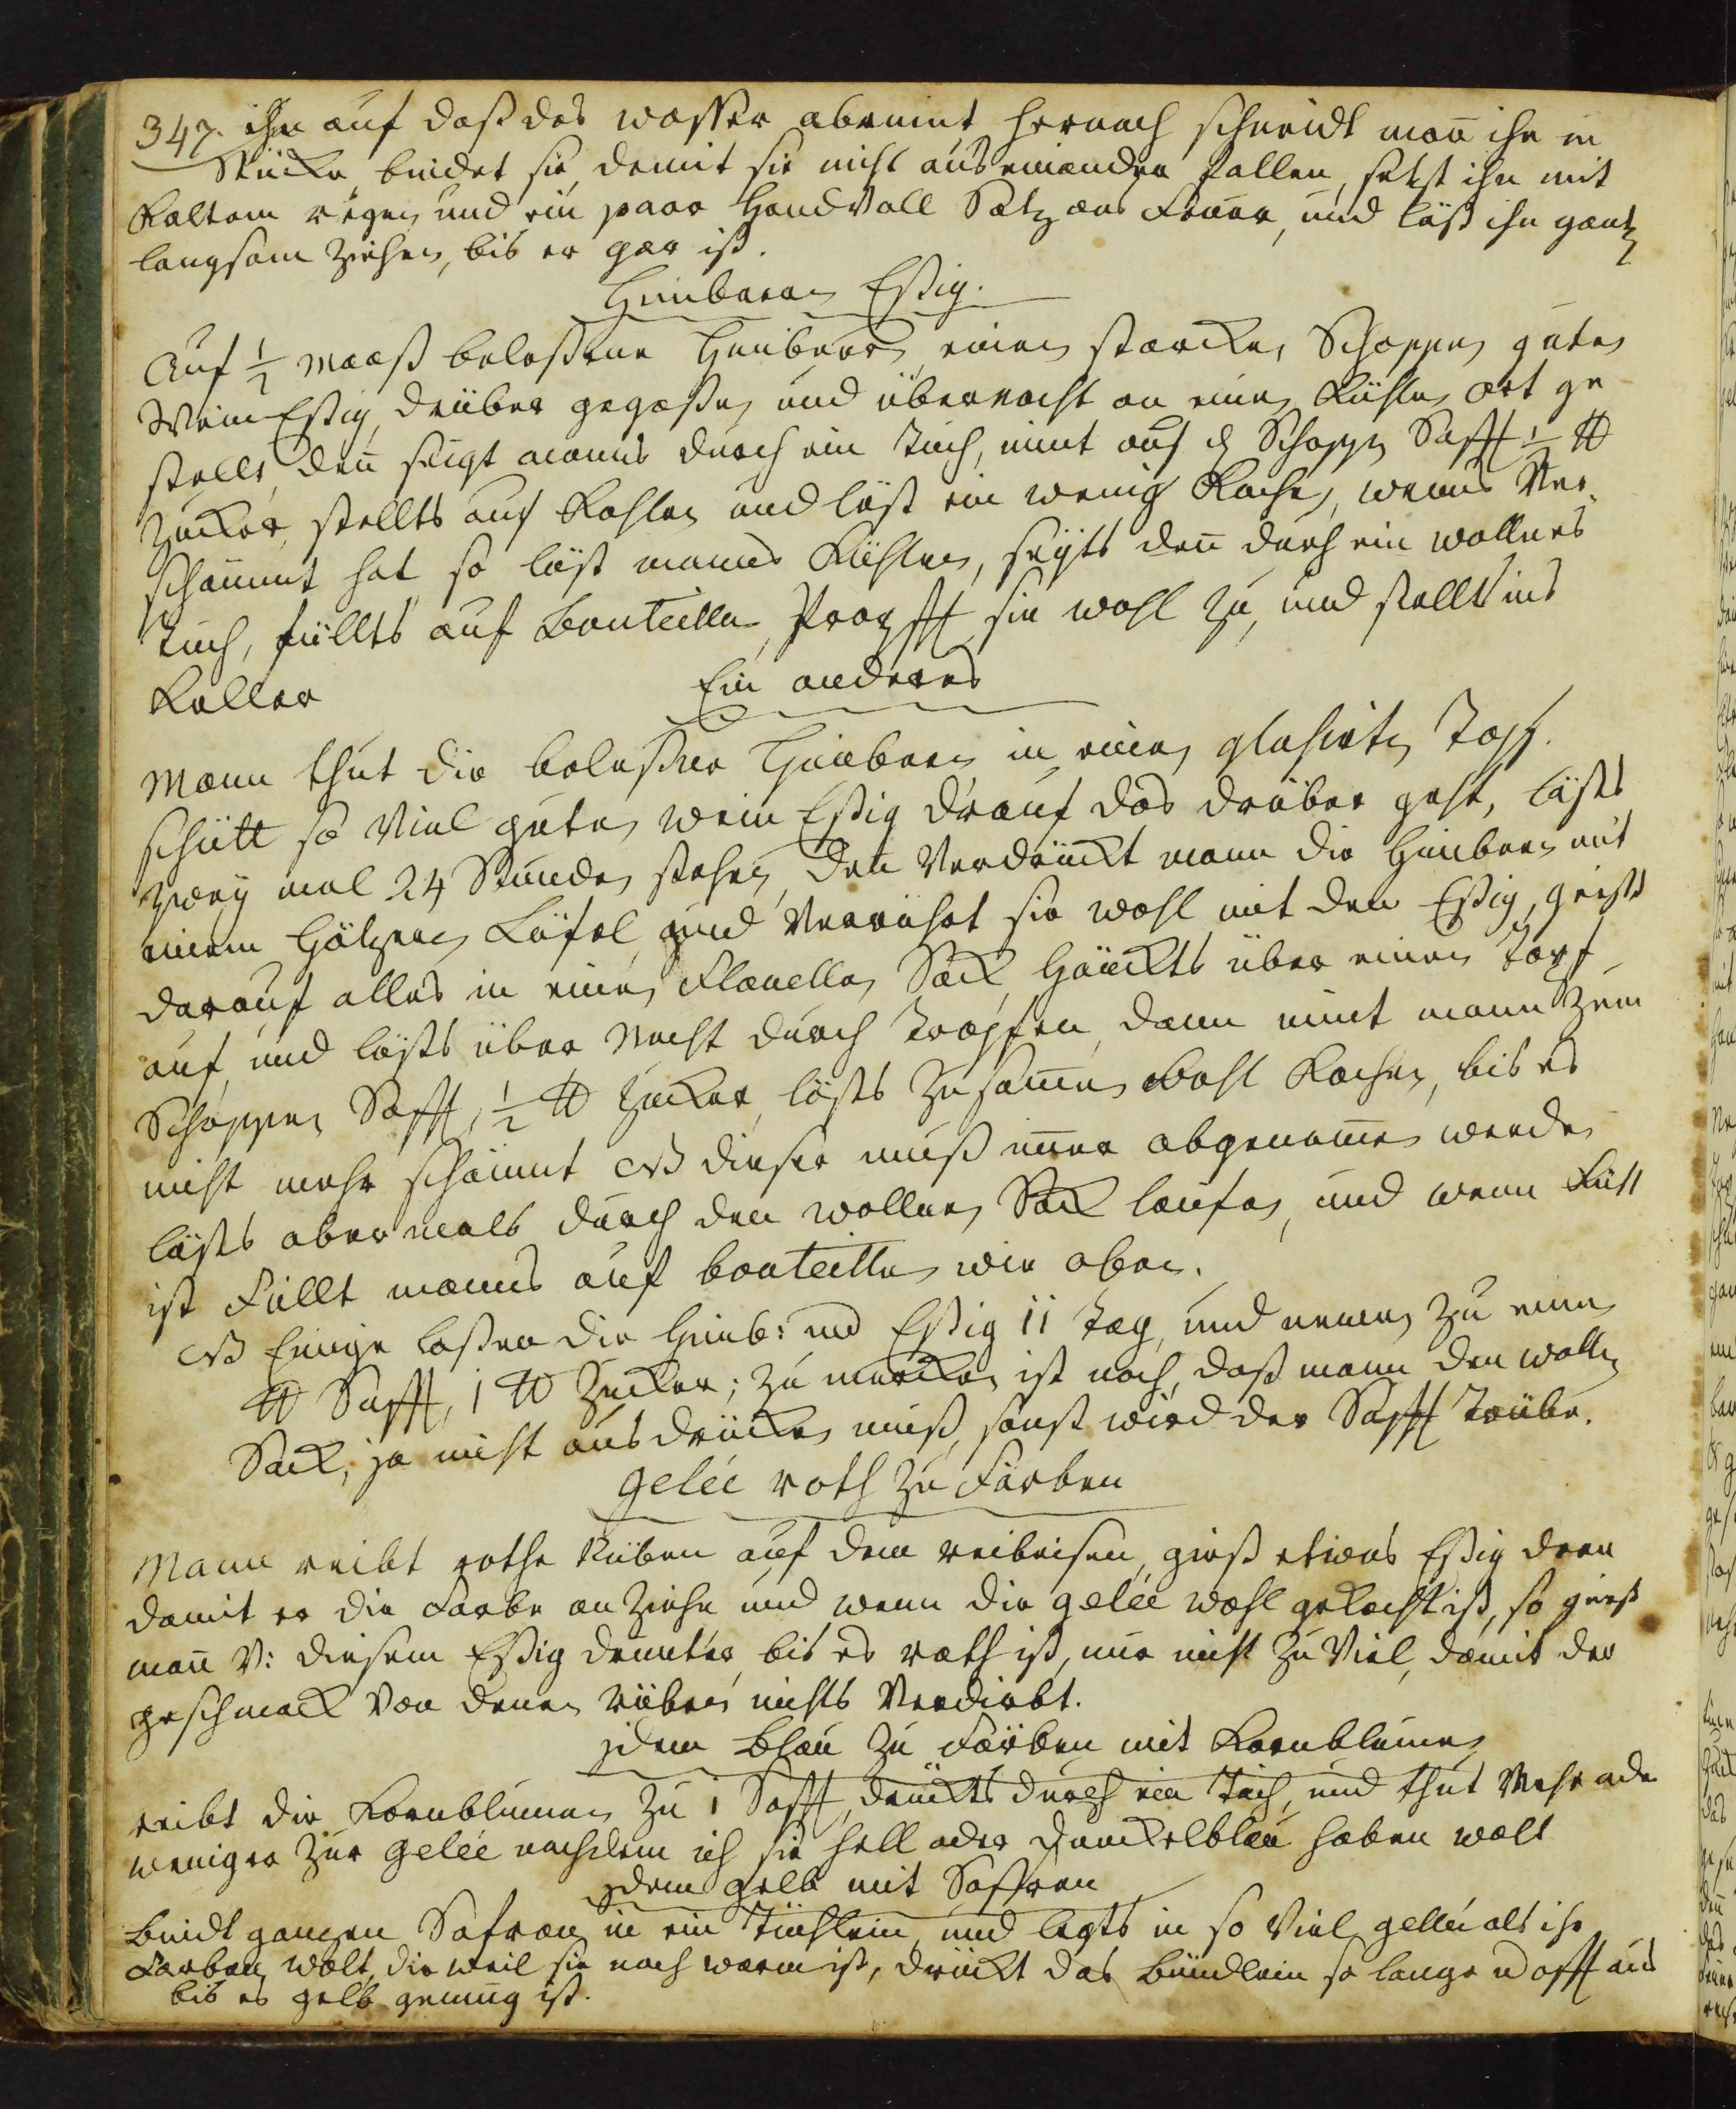 347. ihn auf daß das wasser abrinnt hernach schneidt mañ ihn in
Stücke, bindet sie, damit sie nicht auseinander fallen, setzt ihn mit
Kaltem regen und ein paar Handvoll Saltz ans Feuer, und läst ihn gantz
langsam ziehen, bis er gar ist.
Himbeeren Eßig.
Auf ½ Maaß beleßene Himbeer, einen starcken Schoppen guten
Wein Eßig, drüber gegoßen und übernacht an einen Kühlen ort ge
stellt, deñ seigt manns durch ein Tuch, nimt auf den Schoppen Safft ½ ℔
Zucker, stellts auf Kohlen und läst ein wenig Kochen, wenns Ver-
schaumt hat so läst manns Kühlen, seyts deñ durch ein wollnes
Tuch, füllts auf Bouteillen, Propfft sie wohl zu, und stellts ins
Keller
Ein anderes
Mann thut die beleßene Himbeer in einen glasirten Topf.
schütt so Viel guten wein Eßig drauf das drüber geht, lästs
zwey mal 24 Stunden stehen, deñ Verdrückt mann die Himbeer mit
einem Höltzern Löfel und Verrührt sie wohl mit den Eßig, giest
darauf alles in einen Flanellen Sack, Hänckts über einen Topf
auf, und lästs über Nacht durch tropfen, dann nimt mann zum
Schoppen Safft, ½ ℔ Zucker, lästs zusamen wohl Kochen, bis es
nicht mehr schäumt NB dieser muß imer abgenomen werden
lästs abermals durch den wollnen Sack laufen, und wenn Kült
ist Füllt manns auf bouteillen wie oben.
NB Einige laßen die Himb: und Eßig 11 Tag, und nemen zu einen
℔ Safft, 1 ℔ Zucker; zu mercken ist noch, daß mann den wollen
Sack, ja nicht ausdrücken muß, sonst wird der Safft trübe.
gelée roth zu Färben
Mann reibt rothe Rüben auf dem reibeisen, giest etwas Eßig dran
damit er die Farbe an ziehe und wenn die gelée wohl gekocht ist, so giest
mañ V: diesem Eßig drunter, bis es roth ist, nur nicht zu Viel, damit der
geschmack von denen rüben nichts Verdirbt.
idem Blau zu Färben mit Kornblumen
reibt die Kornblumen zu 1 Safft, drückts durch ein Tuch, und thut Mehr oder
weniger zur gelée nachdem ich sie hell oder Dunckelblau haben wolt
idem gelb mit Saffran
bindt gantzen Safran in ein Tüchlein und legts in so Viel gellée als ihr
Farben wolt, die weil sie noch warm ist, drückt das bündlein so lange u offt aus
bis es gelb genung ist.